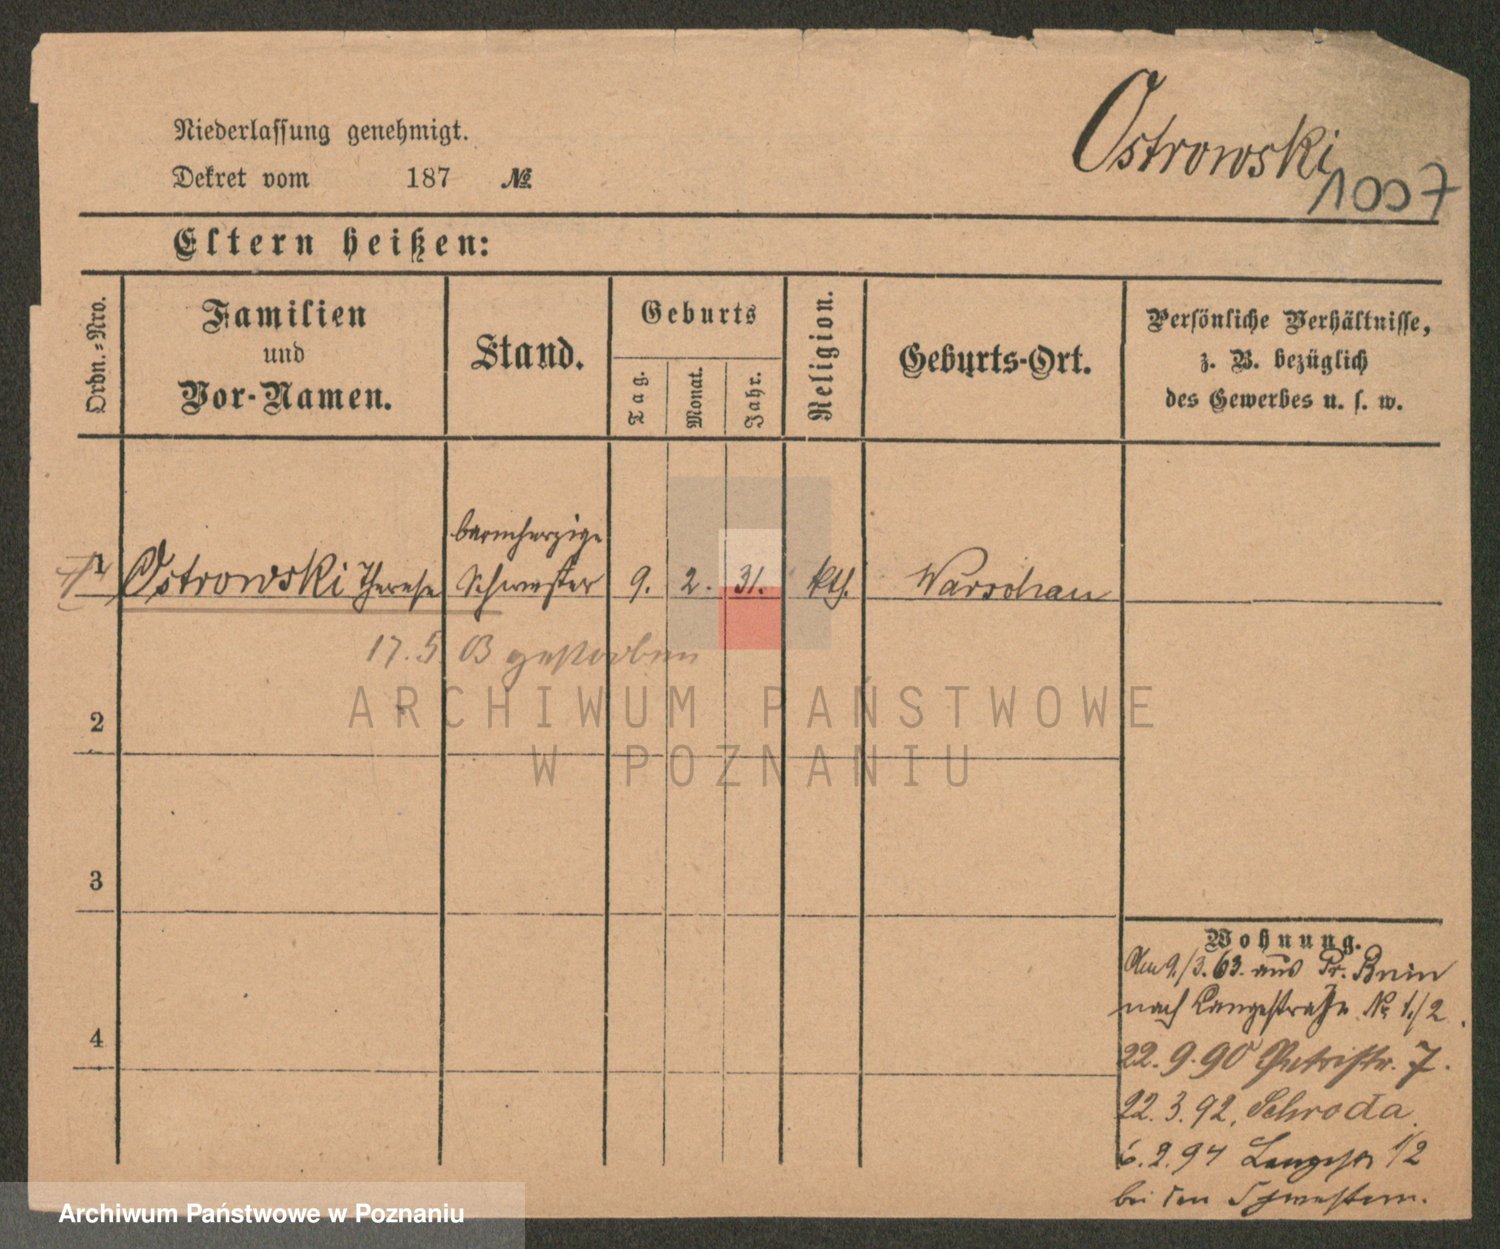 Ostrowski
1007
Niederlassung genehmigt.
Dekret vom 187 №
Eltern heißen:
Ordn.-Nro.
Familien
und
Vor-Namen.
Stand.
Geburts
Tag.
Monat.
Jahr.
Religion.
Geburts-Ort.
Persönliche Verhältnisse,
z. B. bezüglich
des Gewerbes u. s. w.
barmherzige
1 Ostrowski Therese Schwester 9. 2. 31. kth. Warschau
17. 5. 03 gestorben
2
3
4
Wohnung.
Am 9./3. 63. aus Pr. Bnin
nach Langestraße № 1./2.
22. 9. 90 Petristr. 7.
22. 3. 92. Schroda.
6. 2. 94 Langestr 1/2
bei den Schwestern.
ARCHIWUM PAŃSTWOWE
W POZNANIU
Archiwum Państwowe w Poznaniu